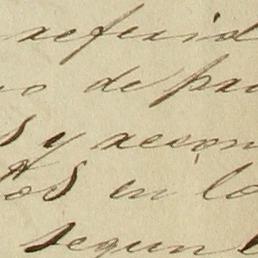 referid
o de pa
s y recon
os en lo
segun